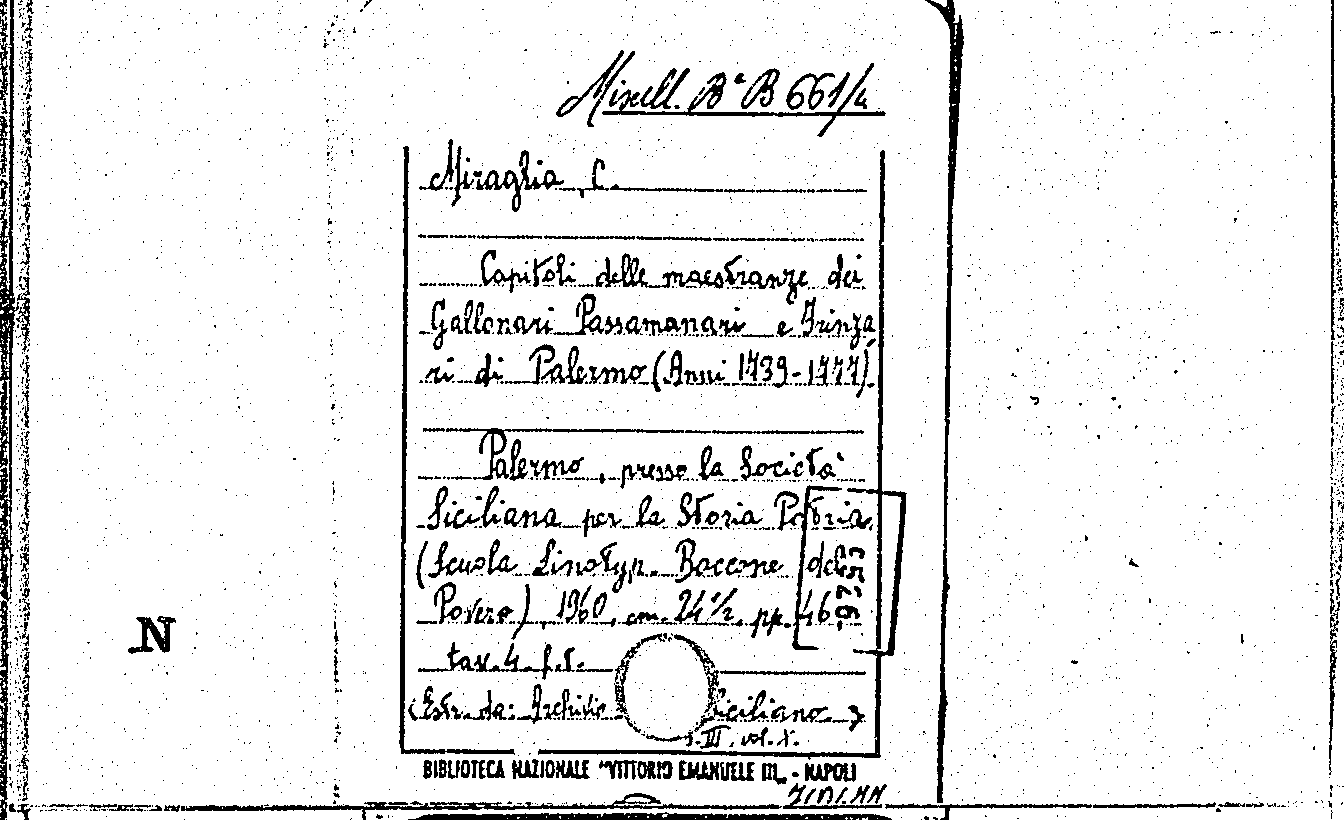 Miscell. Bª B 661/4
Miraglia, C.
Capitoli delle maestranze dei
Gallonari Passamanari e Frinza
ri di Palermo (Anni 1739-1777).
Palermo, presso la Società
Siciliana per la Storia Patria
(Scuola Linotyp. Boccone del
Povero), 1960, cm. 24½, pp. 46,
tav. 4 f.t.
(Estr. da: Archivio Siciliano
s. III, vol. X.
BIBLIOTECA NAZIONALE "VITTORIO EMANUELE III" - NAPOLI
N